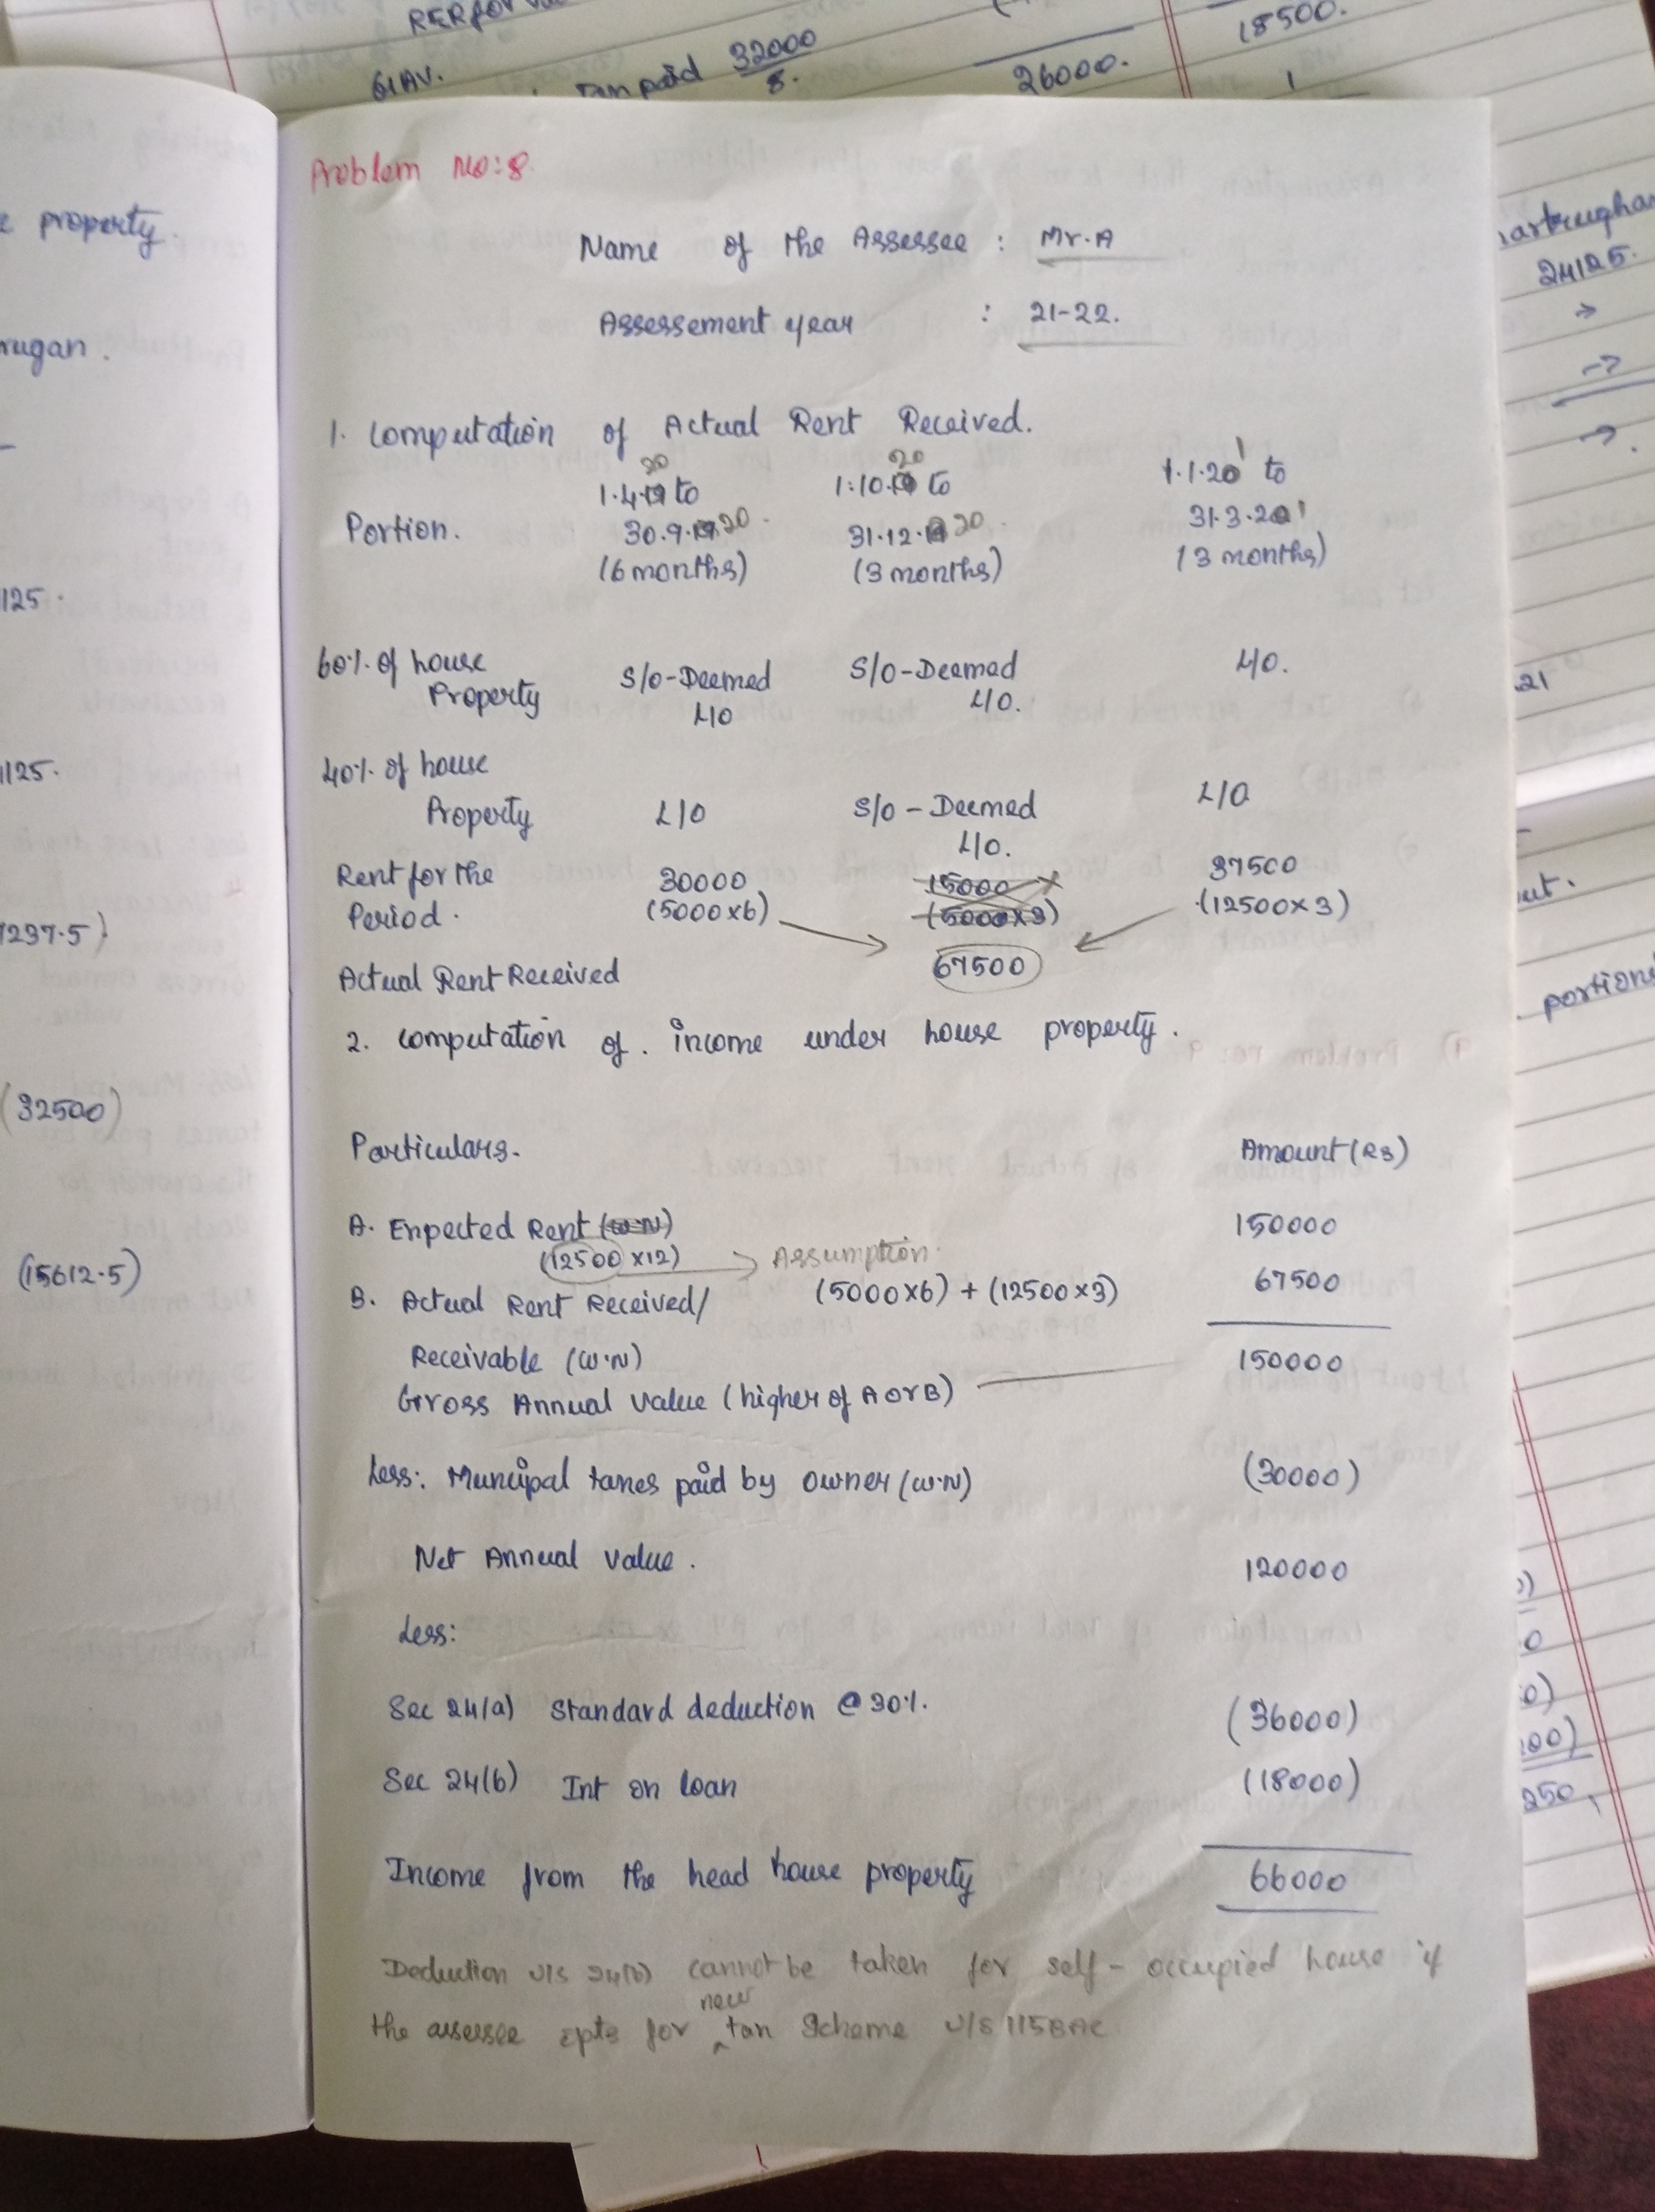 RERfor
GAV.
Tax paid 32000
8.
26000.
18500.
1
e property.
rugan.
125.
1125.
7237.5)
(32500)
(15612.5)
Problem No:8.
Name of the Assessee : Mr.A
Assessement year : 21-22.
1. Computation of Actual Rent Received.
20 20 1
1.4.19 to 1.10.19 to 1.1.20 to
Portion. 30.9.19 20. 31.12.19 20. 31.3.201
(6 months) (3 months) (3 months)
60% of house S/O-Deemed S/O-Deemed L/O.
Property L/O L/O.
40% of house
Property L/O S/O - Deemed L/O
L/O.
Rent for the 30000 15000 37500
Period. (5000x6) (5000x3) (12500x3)
Actual Rent Received 67500
2. Computation of. income under house property.
Particulars. Amount (Rs)
A. Expected Rent (W.N) 150000
(12500 x12) Assumption.
B. Actual Rent Received/ (5000x6) + (12500x3) 67500
Receivable (W.N) 150000
Gross Annual Value (higher of A or B)
Less: Muncipal taxes paid by owner (W.N) (30000)
Net Annual Value. 120000
Less:
Sec 24(a) Standard deduction @ 30%. (36000)
Sec 24(b) Int on loan (18000)
Income from the head house property 66000
Deduction U/S 24(b) cannot be taken for self-occupied house if
new
the assessee opts for tax Scheme U/S 115BAC
24125.
→
→
→.
21
portions
250.